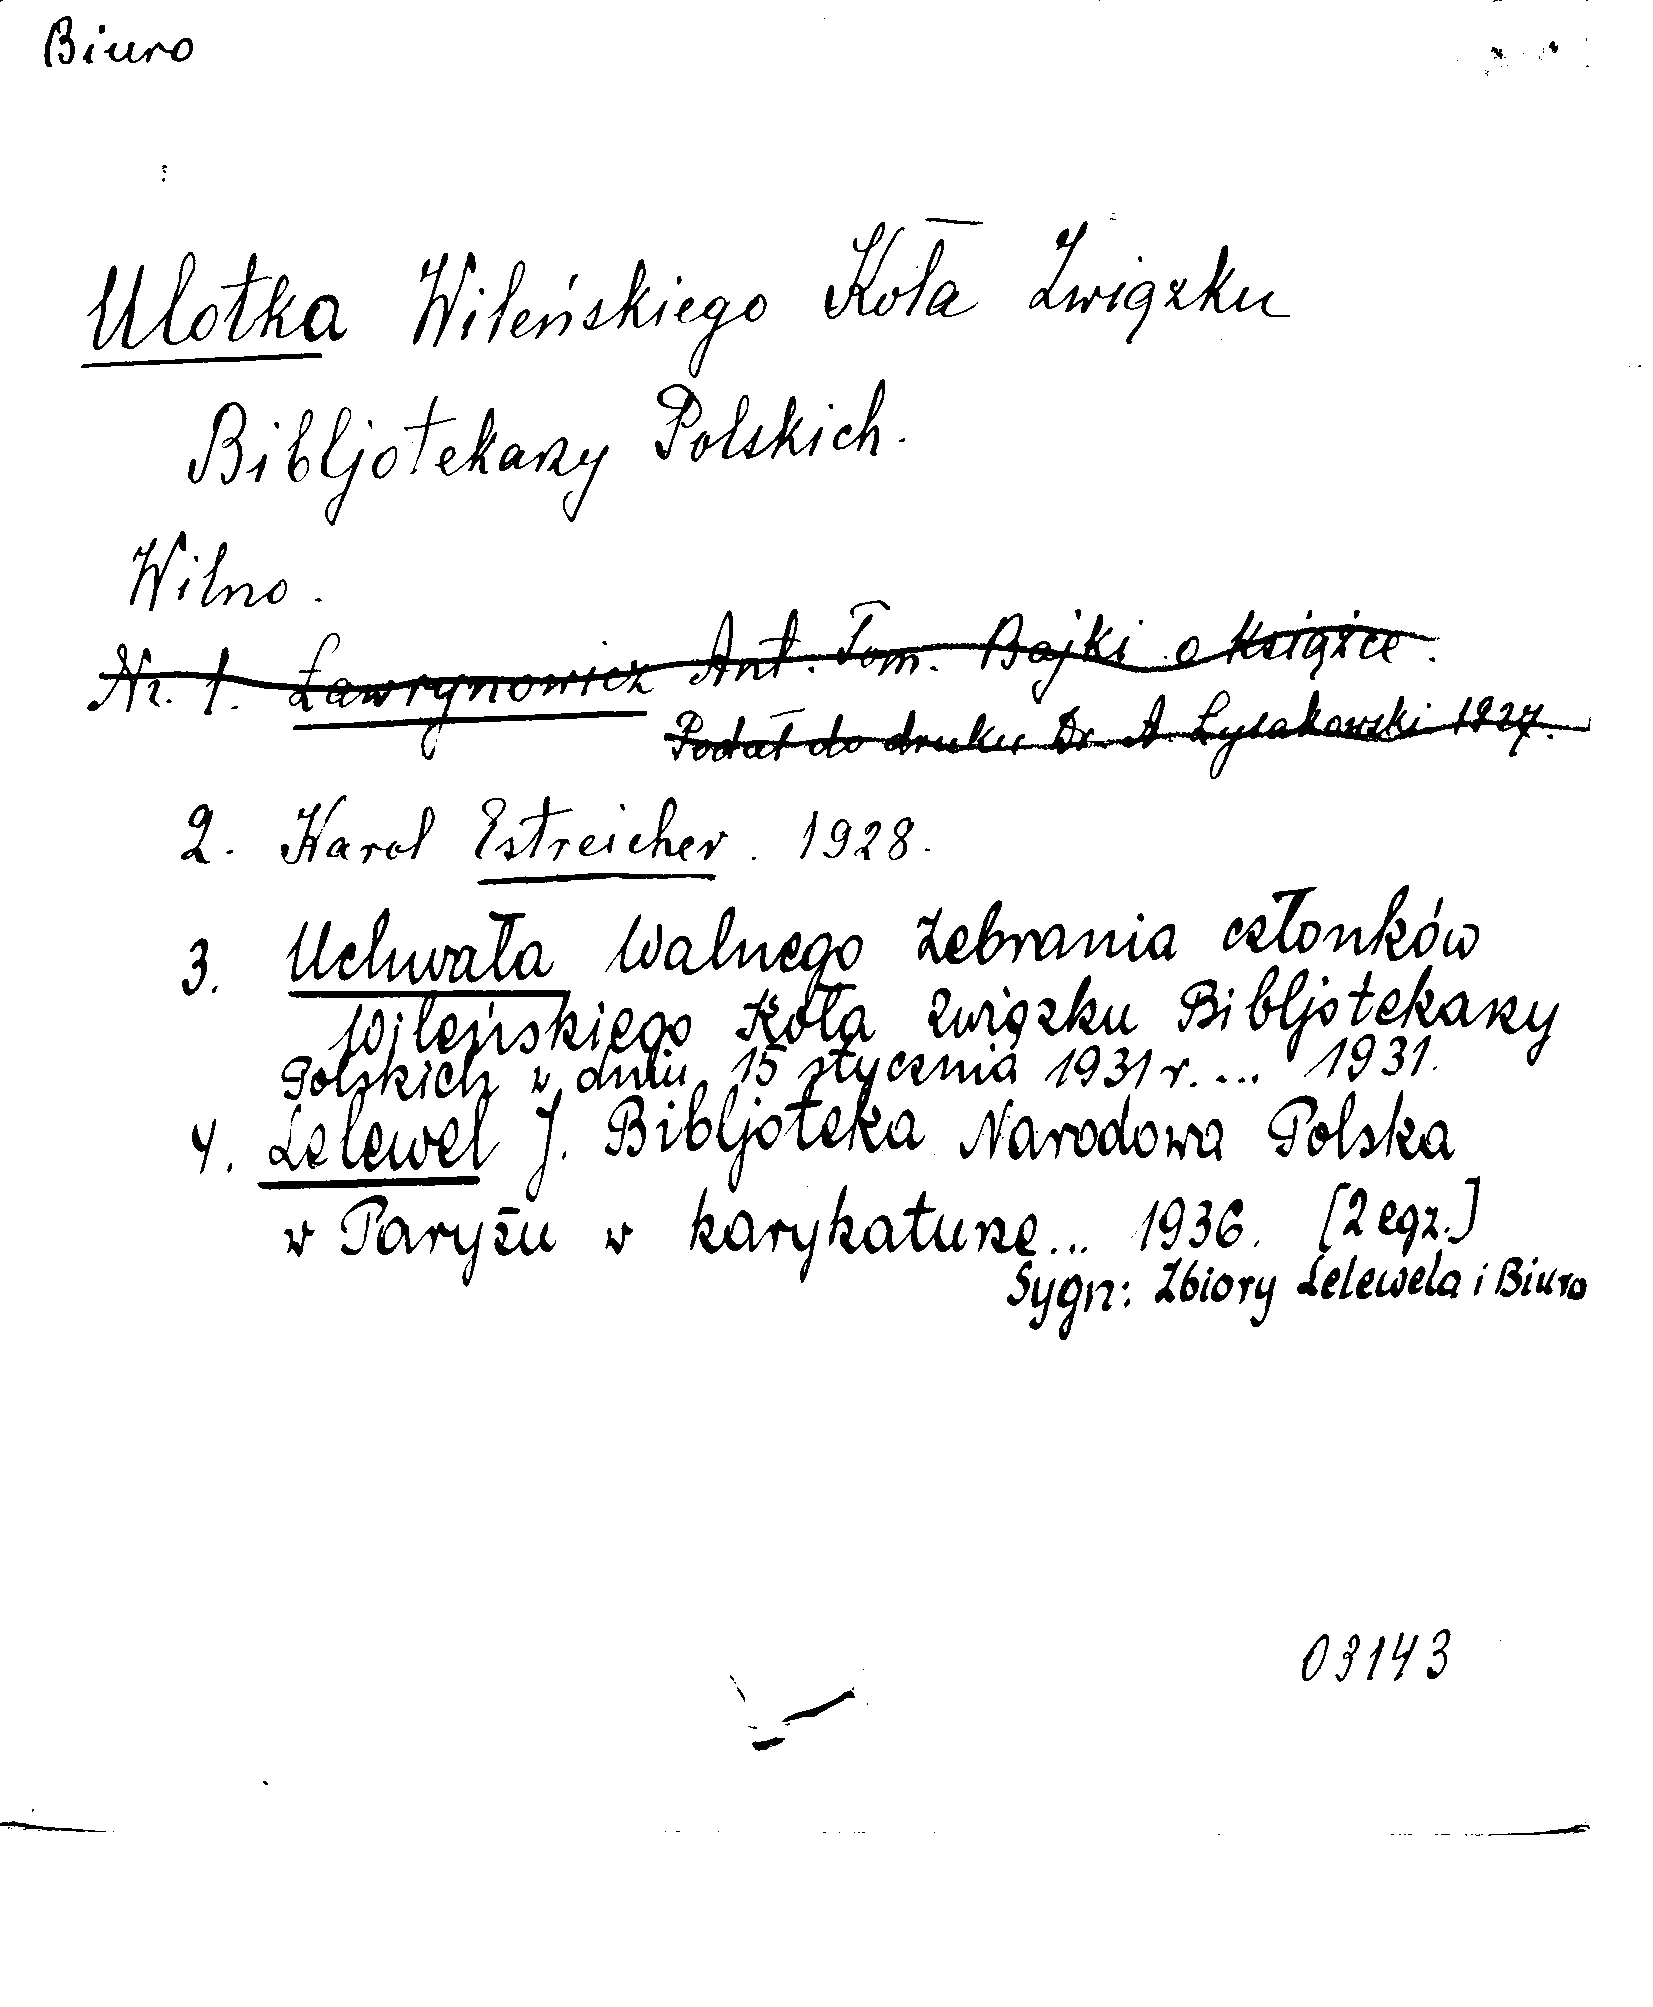 Biuro
Ulotka Wileńskiego Koła Związku
Bibljotekarzy Polskich.
Wilno.
Nr. 1. Ławrynowicz Ant. Tom. Bajki o książce.
Podał do druku Dr. A. Łysakowski 1927.
2. Karol Estreicher. 1928.
3. Uchwała Walnego Zebrania członków
Wileńskiego Koła Związku Bibljotekarzy
Polskich w dniu 15 stycznia 1931 r.... 1931.
4. Lelewel J. Bibljoteka Narodowa Polska
w Paryżu w karykaturze... 1936. [2 egz.]
Sygn: Zbiory Lelewela i Biuro
03143